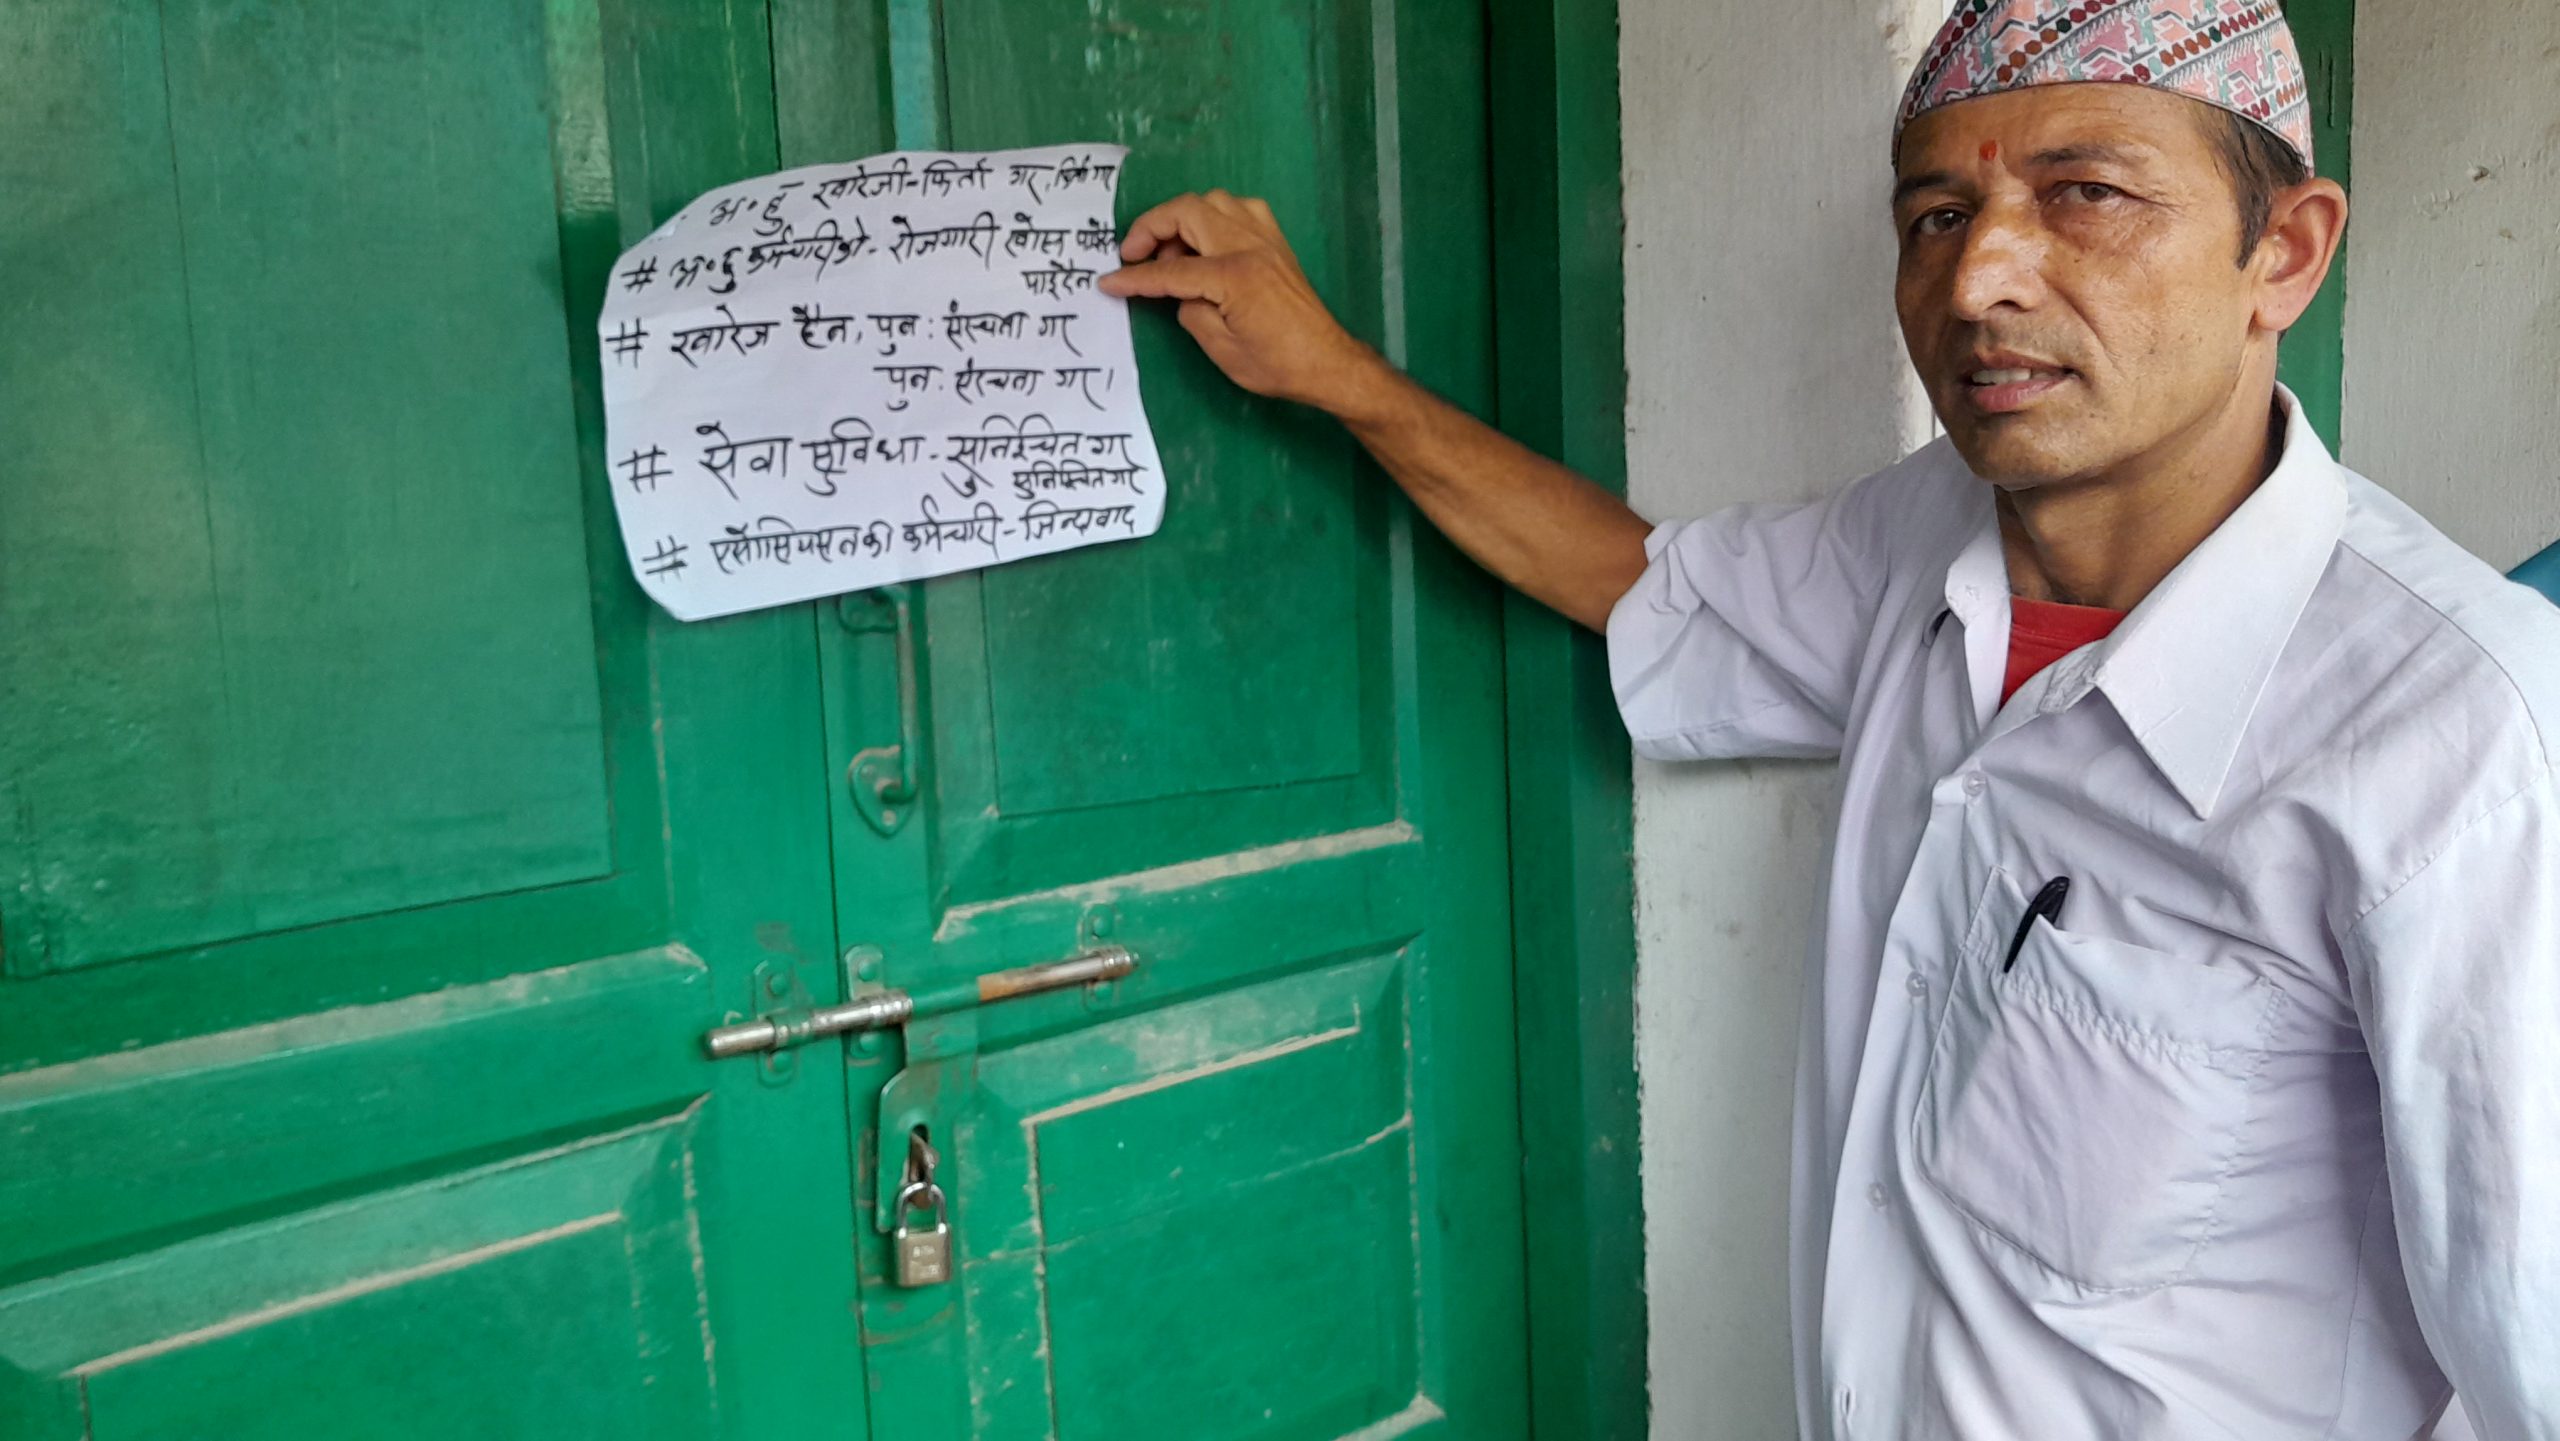 अ॰दु खारेजी-फिर्ता गर, फिर्ता गर
# अ॰दु कर्मचारीको- रोजगारी खोस्न पाईदैन
पाईदैन
# खारेज हैन, पुन: संरचना गर
पुन: संरचना गर।
# सेवा सुविधा- सुनिश्चित गर
सुनिश्चित गर
# एसोसियसनकी कर्मचारी- जिन्दावाद